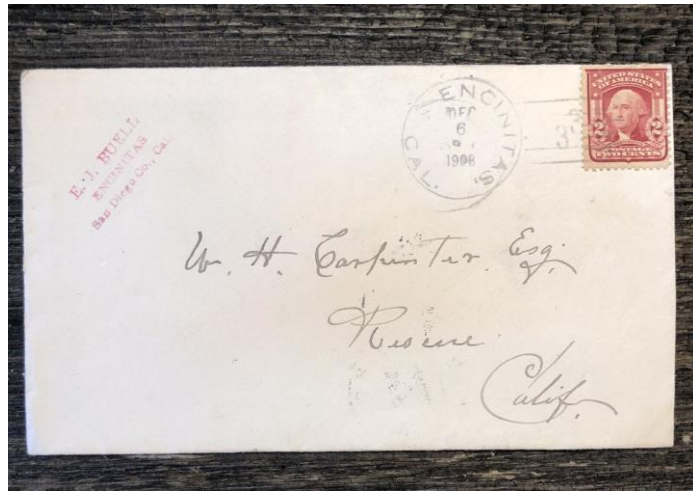 E. J. BUELL
ENCINITAS
San Diego Co., Cal.
ENCINITAS,
DEC
6
1908
CAL.
UNITED STATES
OF AMERICA
2 2
POSTAGE
TWO CENTS
W. H. Carpenter. Esq.
Rescue
Calif.